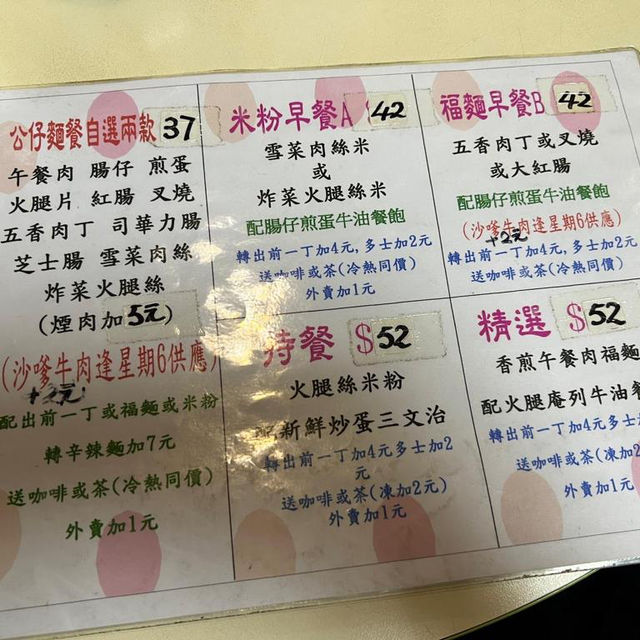 公仔麵餐自選兩款 37
午餐肉 腸仔 煎蛋
火腿片 紅腸 叉燒
五香肉丁 司華力腸
芝士腸 雪菜肉絲
炸菜火腿絲
(煙肉加5元)
(沙嗲牛肉逢星期6供應)
+2元
配出前一丁或福麵或米粉
轉辛辣麵加7元
送咖啡或茶(冷熱同價)
外賣加1元
米粉早餐A 42
雪菜肉絲米
或
炸菜火腿絲米
配腸仔煎蛋牛油餐飽
轉出前一丁加4元,多士加2元
送咖啡或茶(冷熱同價)
外賣加1元
福麵早餐B 42
五香肉丁或叉燒
或大紅腸
配腸仔煎蛋牛油餐飽
(沙嗲牛肉逢星期6供應)
+2元
轉出前一丁加4元,多士加2元
送咖啡或茶(冷熱同價)
特餐 $52
火腿絲米粉
配新鮮炒蛋三文治
轉出前一丁加4元多士加2
元
送咖啡或茶(凍加2元)
外賣加1元
精選 $52
香煎午餐肉福麵
配火腿庵列牛油餐
轉出前一丁加4元多士
送咖啡或茶(凍加2
外賣加1元